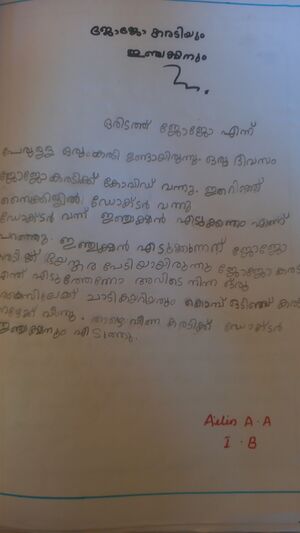 ജോജോ കരടിയും
ഇഞ്ചക്ഷനും
ഒരിടത്ത് ജോജോ എന്ന്
പേരുള്ള ഒരു കരടി ഉണ്ടായിരുന്നു. ഒരു ദിവസം
ജോജോ കരടിക്ക് കോവിഡ് വന്നു.
സൈക്കിളിൽ ഡോക്ടർ വന്നു
ഡോക്ടർ വന്ന് ഇഞ്ചക്ഷൻ എടുക്കണം എന്ന്
പറഞ്ഞു. ഇഞ്ചക്ഷൻ എടുക്കുന്നത് ജോജോ
കരടിക്ക് ഭയങ്കര പേടിയായിരുന്നു ജോജോ കരടി
എന്ത് ചെയ്തെന്നോ അവിടെ നിന്ന ഒരു
ചാടികയറിയതും കൊമ്പ് ഒടിഞ്ഞ് കരടി
താഴേക്ക് വീണു. താഴെ വീണ കരടിക്ക് ഡോക്ടർ
ഇഞ്ചക്ഷനും എടുത്തു.
Ailin A.A
I.B